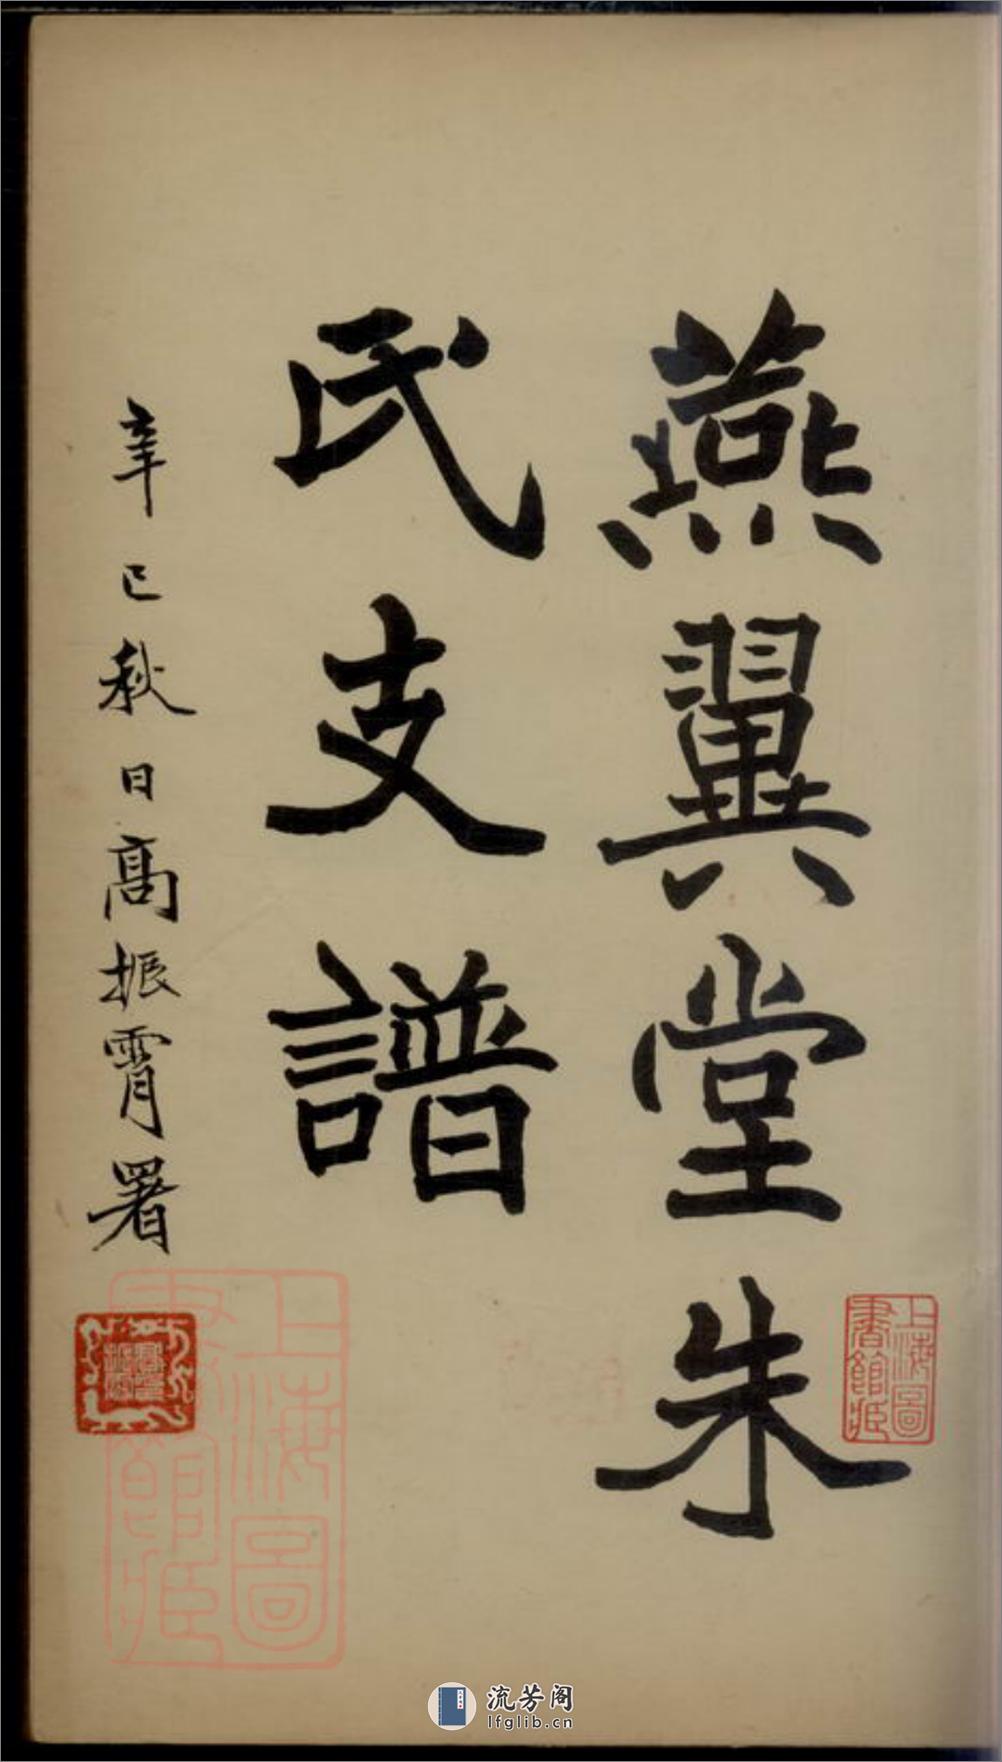 燕翼堂朱
氏支譜
辛巳秋日高振霄署
上海圖
書館藏
上海圖
書館藏
流芳阁
lfglib.cn